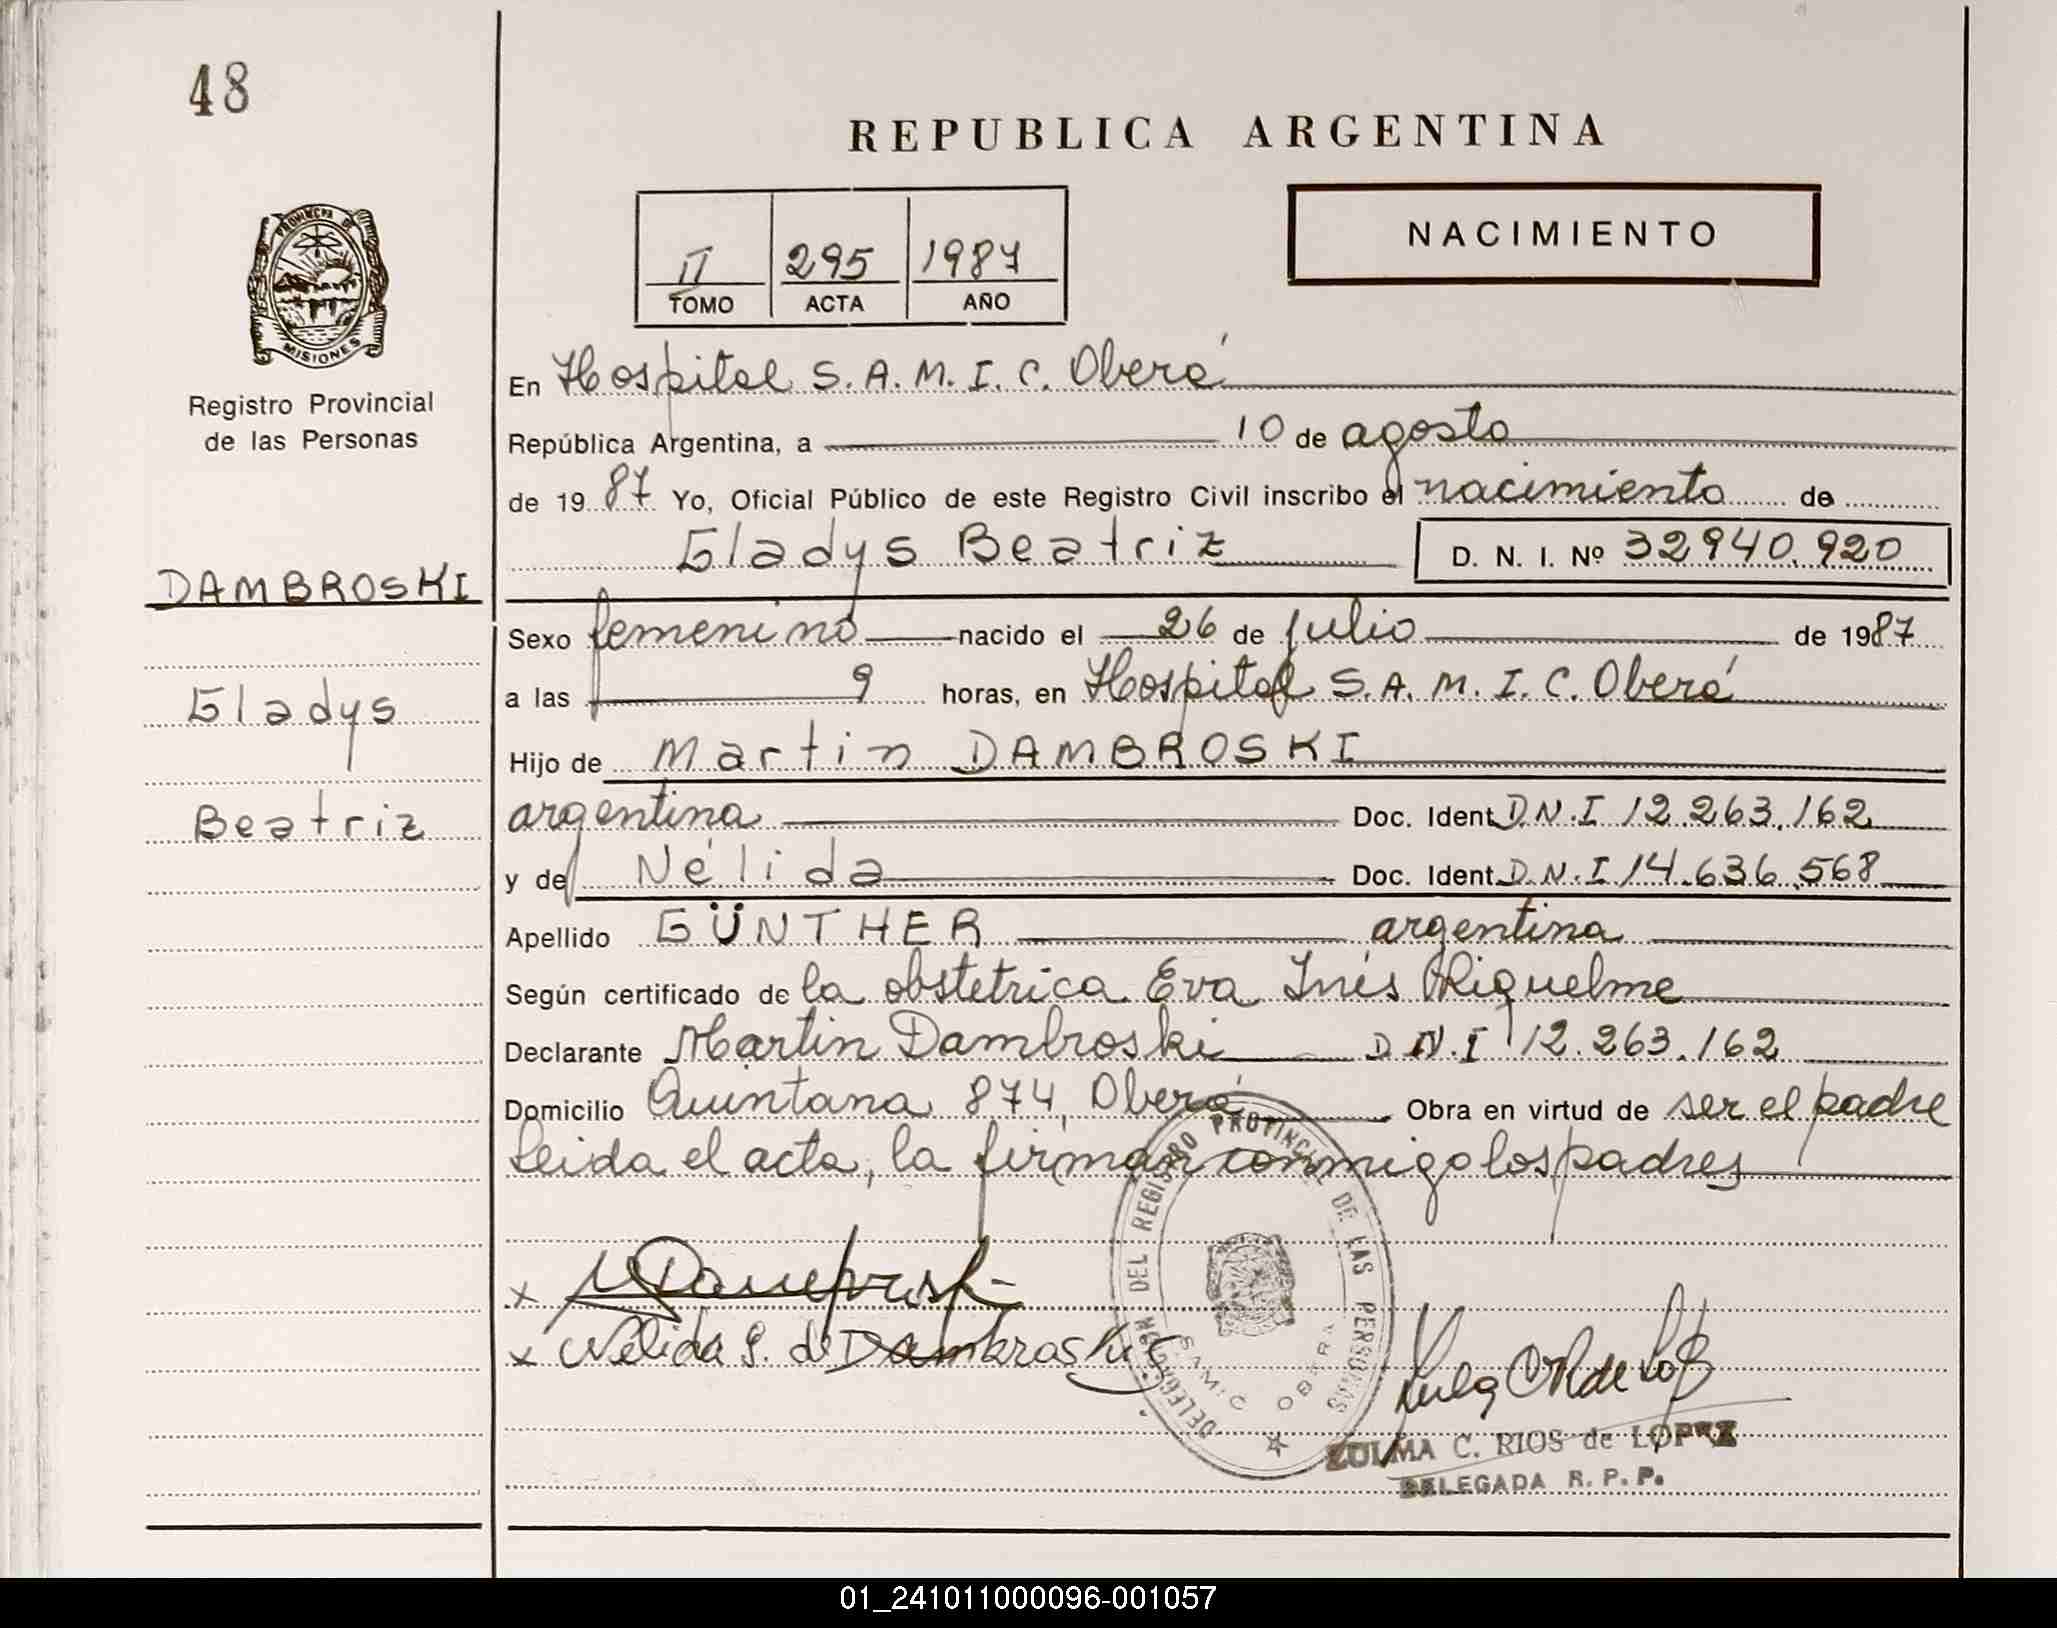 48
REPUBLICA ARGENTINA
II 295 1987
TOMO ACTA AÑO
NACIMIENTO
PROVINCIA DE
MISIONES
Registro Provincial
de las Personas
DAMBROSKI
Gladys
Beatriz
En Hospital S.A.M.I.C. Oberá
República Argentina, a 10 de agosto
de 1987 Yo, Oficial Público de este Registro Civil inscribo el nacimiento de
Gladys Beatriz D. N. I. Nº 32940.920
Sexo femenino nacido el 26 de julio de 1987
a las 9 horas, en Hospital S.A.M.I.C. Oberá
Hijo de Martin DAMBROSKI
argentina Doc. Ident. D.N.I 12.263.162
y de Nélida Doc. Ident. D.N.I 14.636.568
Apellido GÜNTHER argentina
Según certificado de la obstetrica Eva Inés Riquelme
Declarante Martin Dambroski D.N.I 12.263.162
Domicilio Quintana 874, Oberá Obra en virtud de ser el padre
Leida el acta, la firman conmigo los padres
x
x Nelida G. de Dambroski
DELEGACION DEL REGISTRO PROVINCIAL DE LAS PERSONAS
SAMIC OBERA
ZULMA C. RIOS de LOPEZ
DELEGADA R. P. P.
01_241011000096-001057